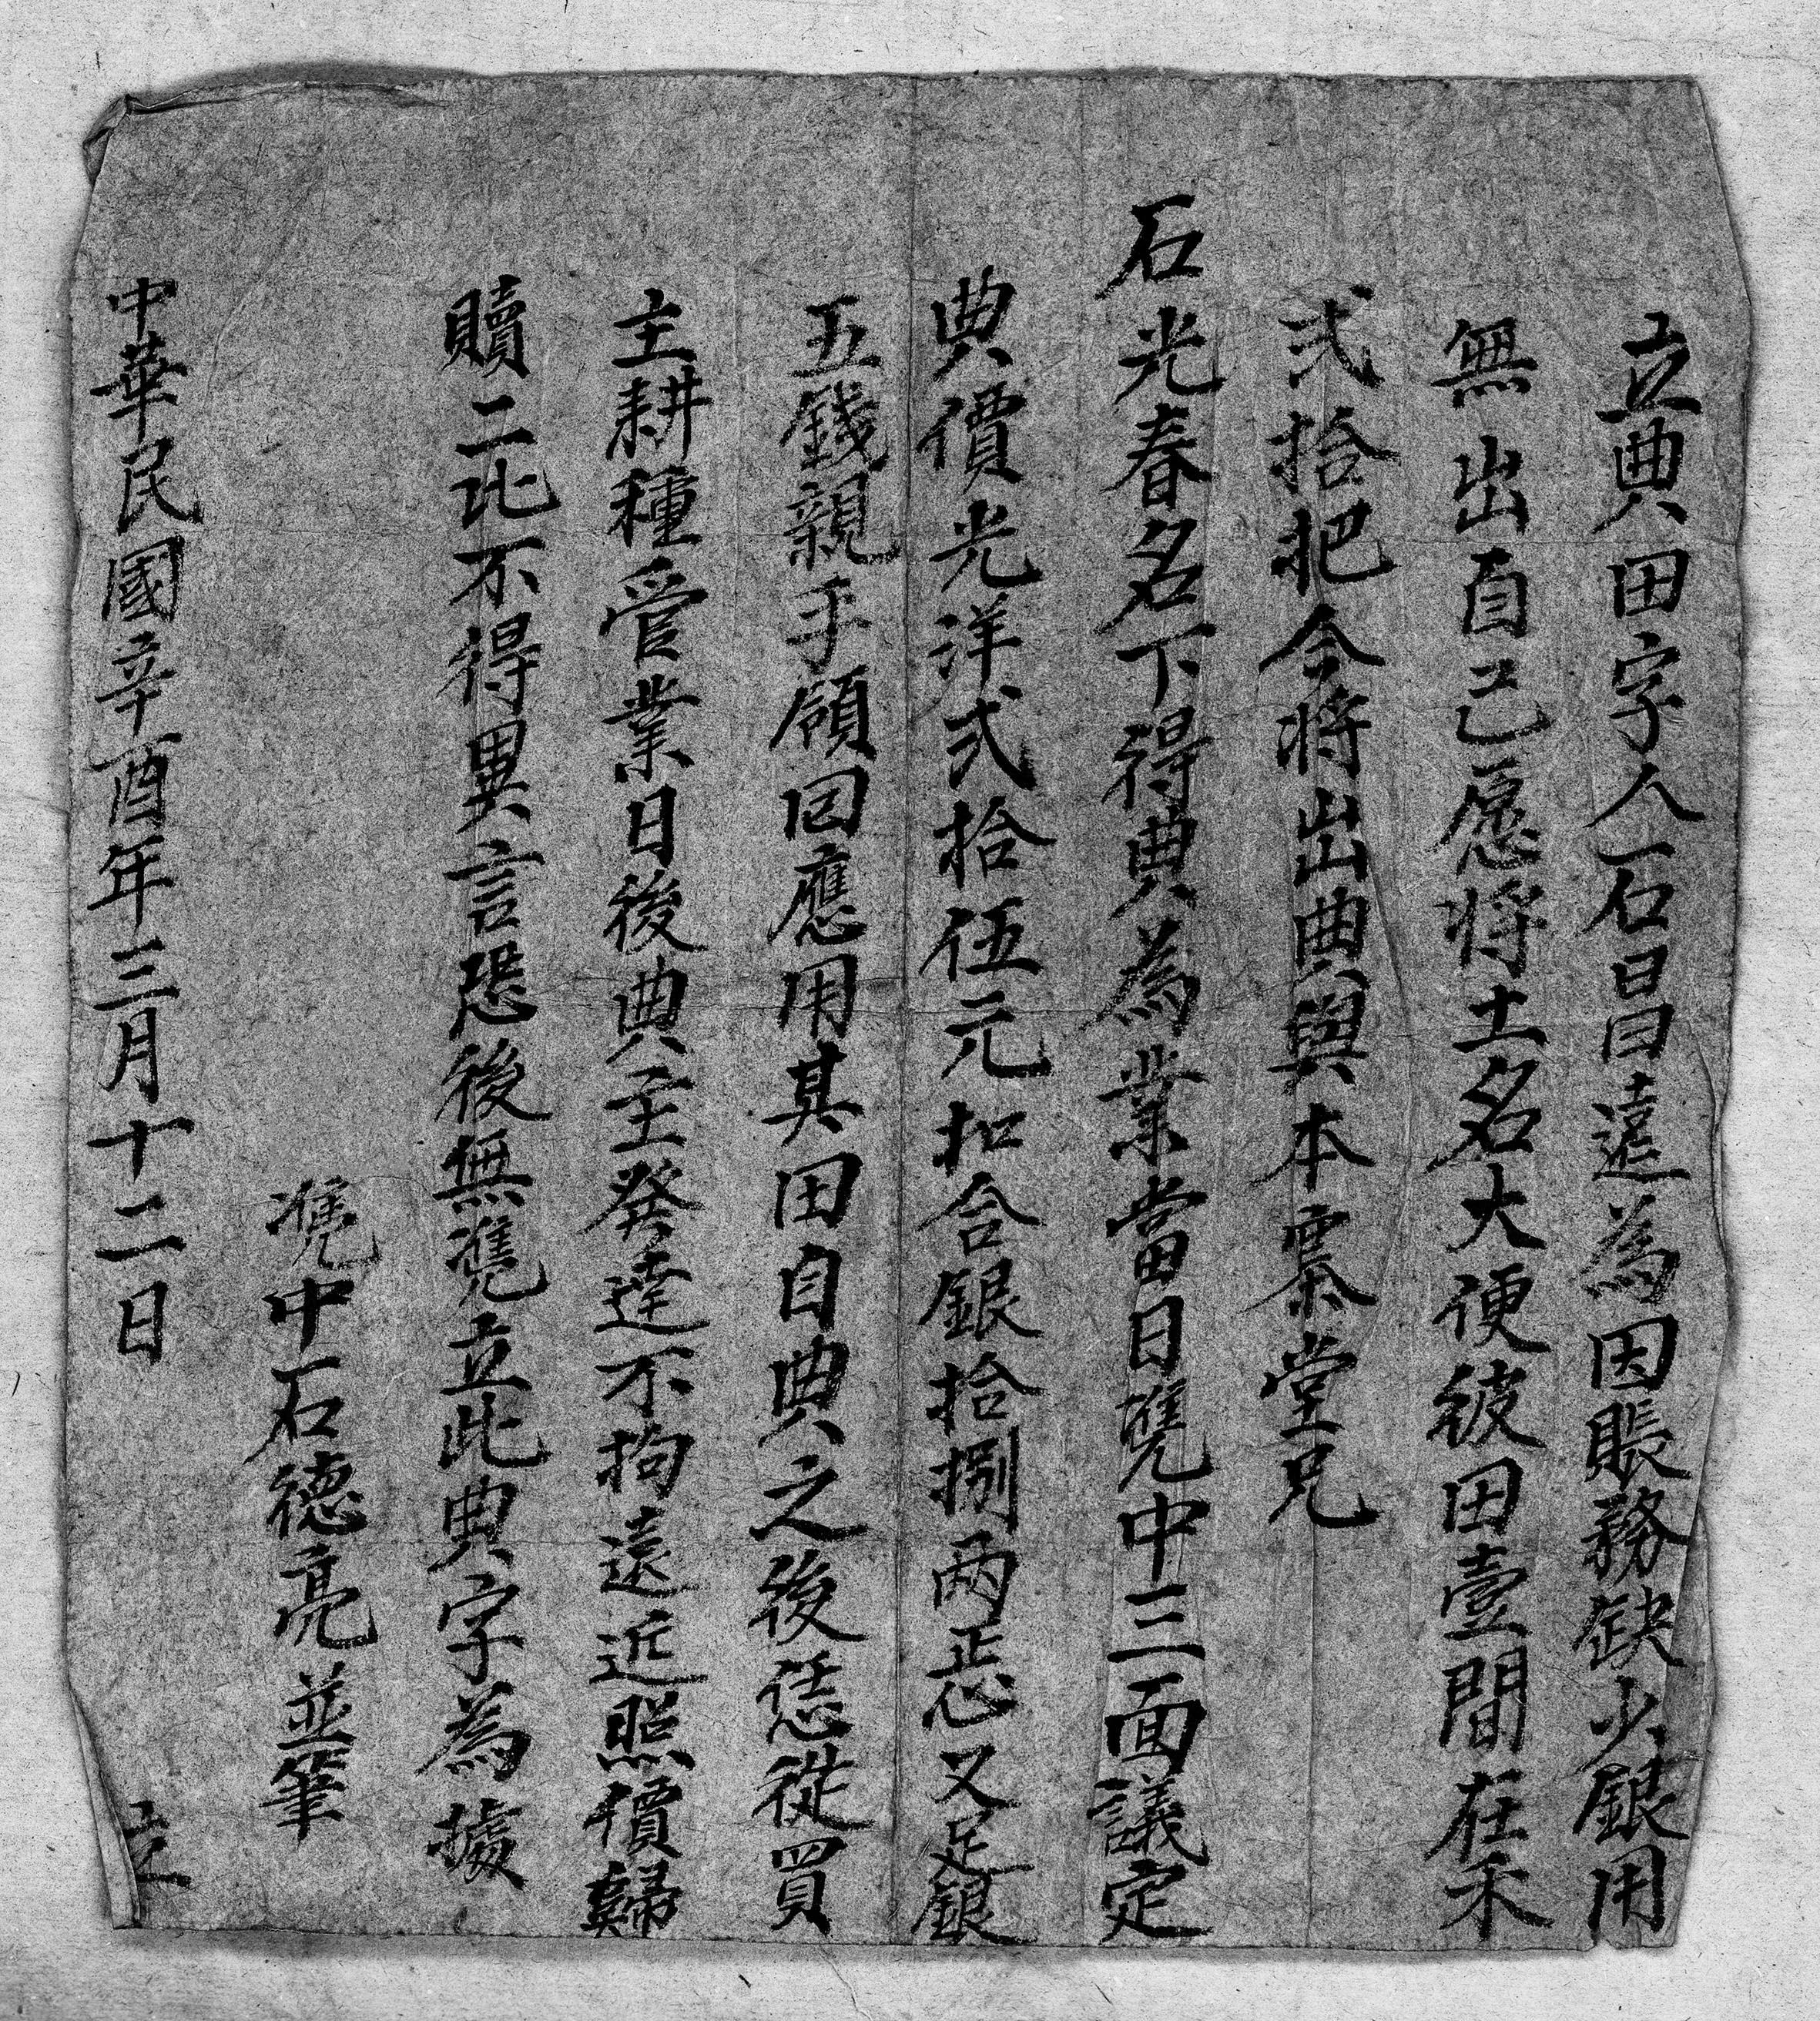 立典田字人石昌遠為因賬務缺少銀用
無出自己愿將土名大便彼田壹間在禾
弍拾把今將出典與本寨堂兄
石光春名下得典為業當日凴中三面議定
典價光洋弍拾伍元扣合銀拾捌両
五錢親手領回應用其田自典之後恁從買
主耕種管業日後典主發達不拘遠近照價歸
贖二比不得異言恐後無凴立此典字為據
凴中石德亮並筆
中華民國辛酉年三月十二日 立